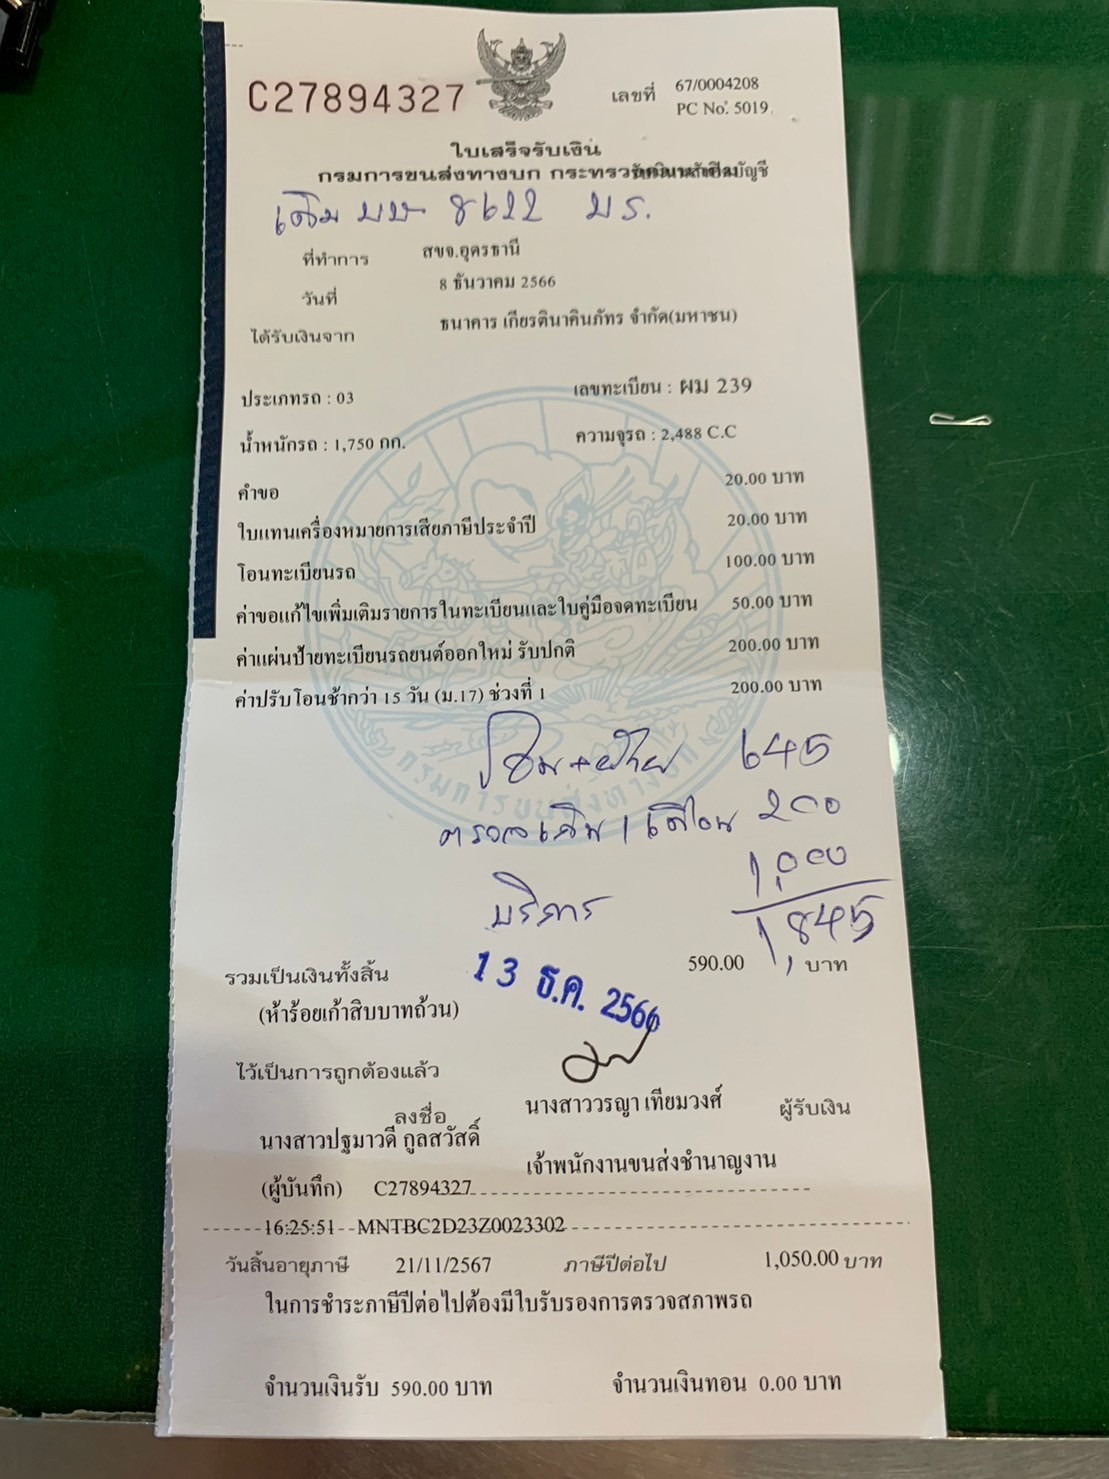 C27894327
เลขที่ 67/0004208
PC No. 5019
ใบเสร็จรับเงิน
กรมการขนส่งทางบก กระทรวงคมนาคม
เดิม 8622 บร.
ที่ทำการ สขจ.อุดรธานี
วันที่ 8 ธันวาคม 2566
ได้รับเงินจาก ธนาคาร เกียรตินาคินภัทร จำกัด(มหาชน)
ประเภทรถ : 03 เลขทะเบียน : ผม 239
น้ำหนักรถ : 1,750 กก. ความจุรถ : 2,488 C.C
คำขอ 20.00 บาท
ใบแทนเครื่องหมายการเสียภาษีประจำปี 20.00 บาท
โอนทะเบียนรถ 100.00 บาท
ค่าขอแก้ไขเพิ่มเติมรายการในทะเบียนและใบคู่มือจดทะเบียน 50.00 บาท
ค่าแผ่นป้ายทะเบียนรถยนต์ออกใหม่ รับปกติ 200.00 บาท
ค่าปรับโอนช้ากว่า 15 วัน (ม.17) ช่วงที่ 1 200.00 บาท
กรมการขนส่งทางบก
โอน+ย้าย 645
1 เดือน 200
บริการ 1,000
1,845
รวมเป็นเงินทั้งสิ้น 590.00 บาท
(ห้าร้อยเก้าสิบบาทถ้วน)
13 ธ.ค. 2566
ไว้เป็นการถูกต้องแล้ว
ลงชื่อ นางสาววรญา เทียมวงศ์ ผู้รับเงิน
นางสาวปฐมาวดี กูลสวัสดิ์
เจ้าพนักงานขนส่งชำนาญงาน
(ผู้บันทึก) C27894327
16:25:51 MNTBC2D23Z0023302
วันสิ้นอายุภาษี 21/11/2567 ภาษีปีต่อไป 1,050.00 บาท
ในการชำระภาษีปีต่อไปต้องมีใบรับรองการตรวจสภาพรถ
จำนวนเงินรับ 590.00 บาท จำนวนเงินทอน 0.00 บาท